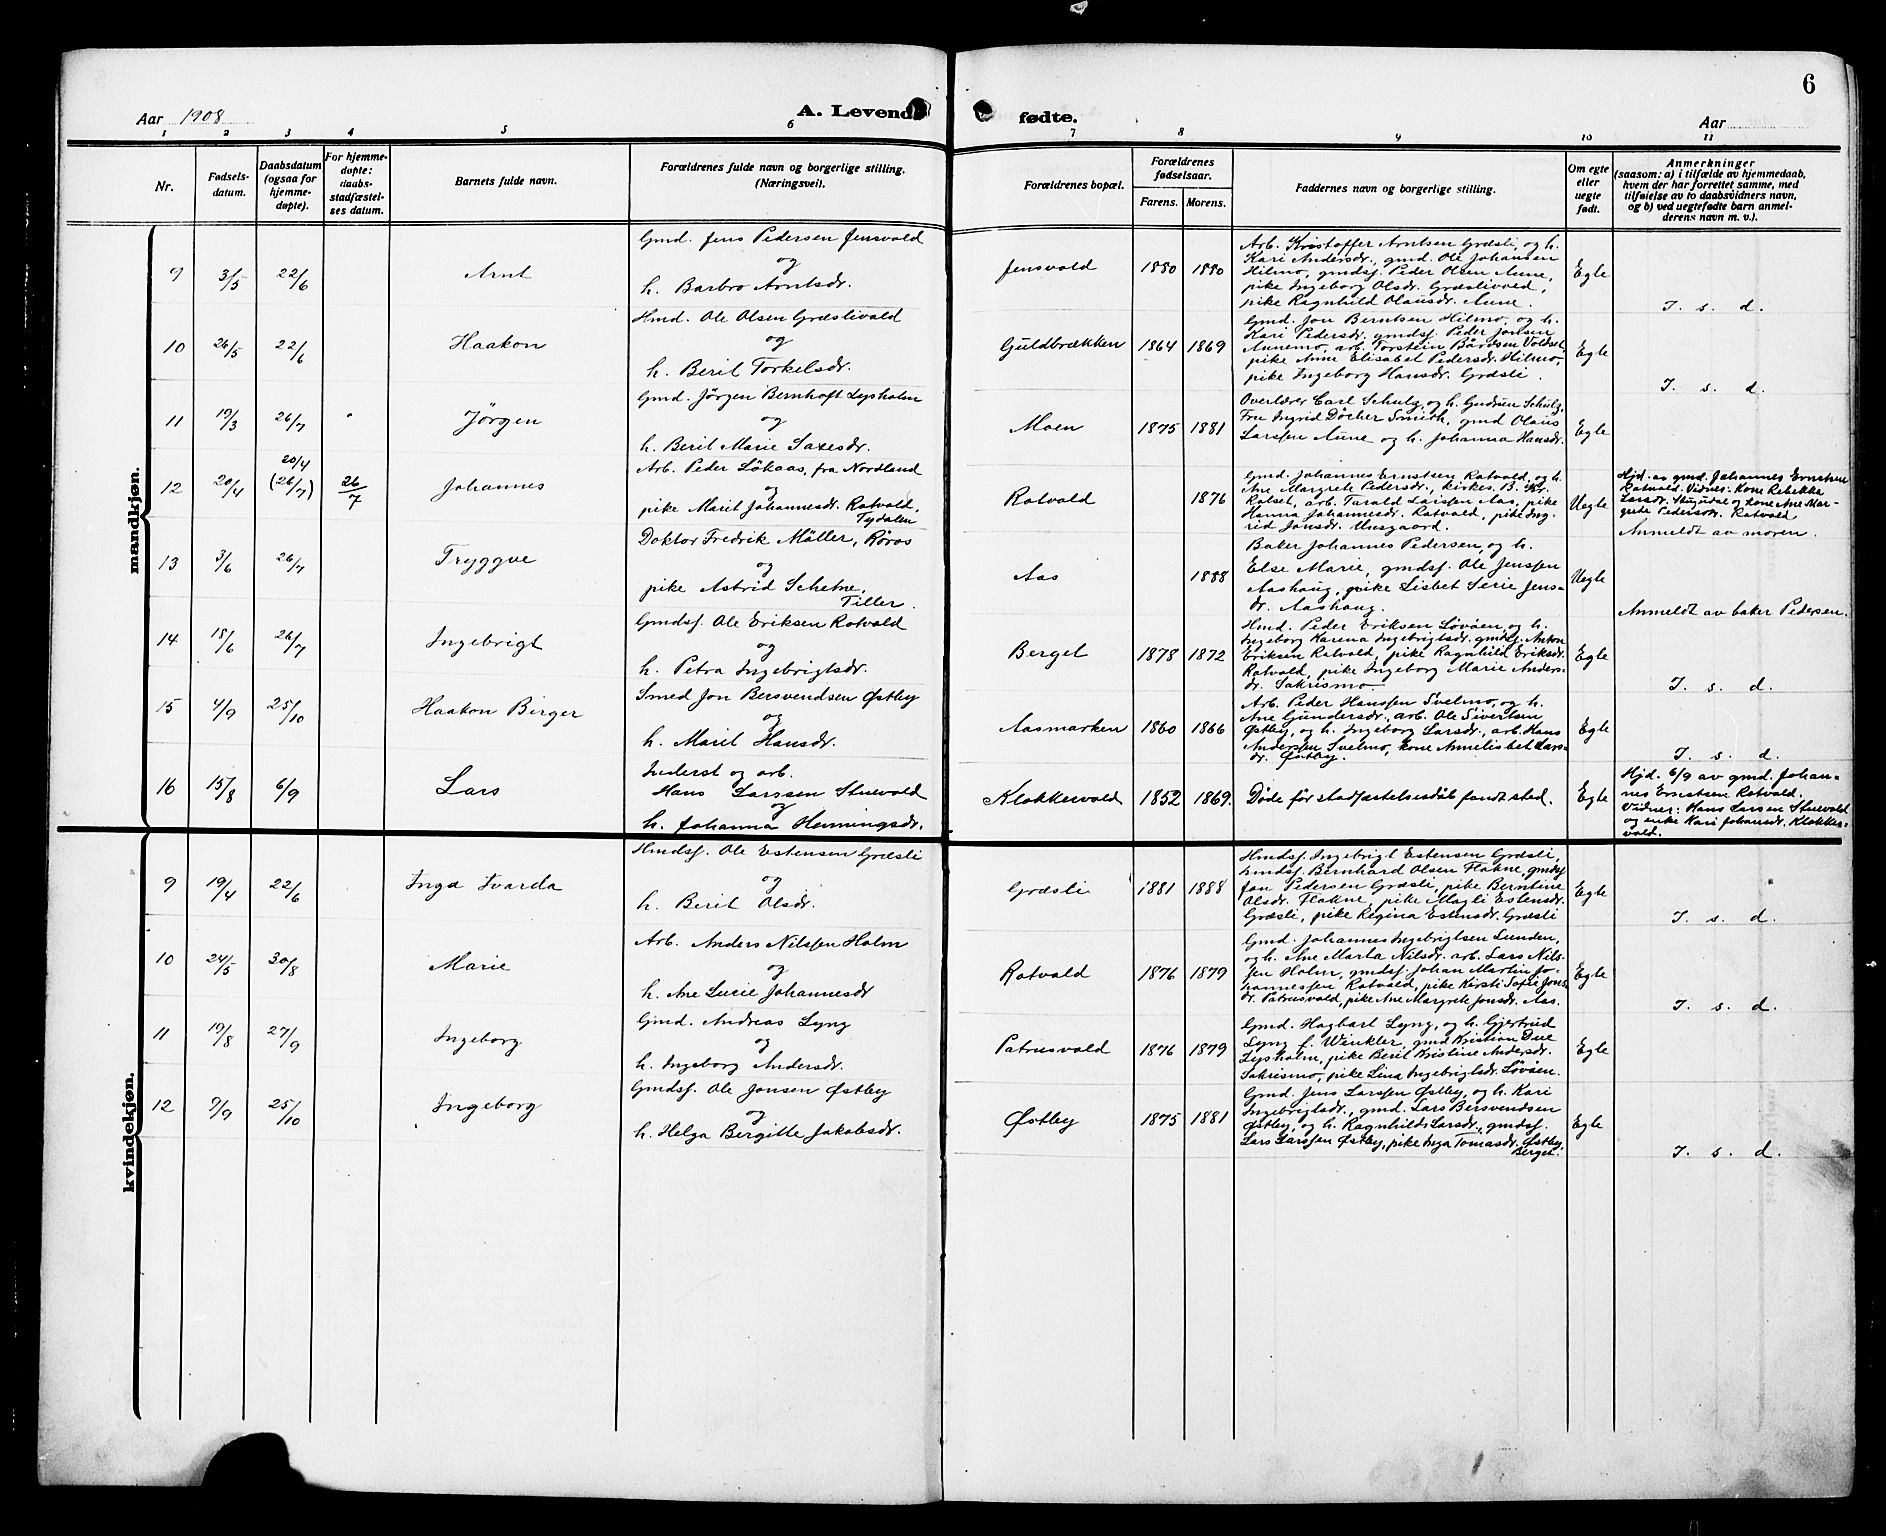 6
Aar 1908 A. Levende fødte. Aar
1 2 3 4 5 6 7 8 9 10 11
Nr.
Fødsels-
datum.
Daabsdatum
(ogsaa for
hjemme-
døpte).
For hjemme-
døpte:
daabs-
stadfæstel-
ses datum.
Barnets fulde navn.
Forældrenes fulde navn og borgerlige stilling.
(Næringsvei).
Forældrenes bopæl.
Forældrenes
fødselsaar.
Farens. Morens.
Faddernes navn og borgerlige stilling.
Om egte
eller
uegte
født.
Anmerkninger
(saasom: a) i tilfælde av hjemmedaab,
hvem der har forrettet samme, med
tilføielse av to daabsvidners navn,
og b) ved uegtefødte barn anmel-
derens navn m. v.).
mandkjøn.
9 3/5 22/6 Arnt
Gmd. Jens Pedersen Jensvold
og
h. Barbro Arntsdr.
Jensvold 1880 1880
Arb. Kristoffer Arntsen Græsli, og h.
Kari Andersdr., gmd. Ole Johansen
Hilmo, gmdsf. Peder Olsen Aune,
pike Ingeborg Olsdr. Græslivold,
pike Ragnhild Olausdr. Aune.
Egte
I. s. d.
10 26/5 22/6 Haakon
Hmd. Ole Olsen Græslivold
og
h. Berit Torkelsdr.
Guldbrækken 1864 1869
Gmd. Jon Berntsen Hilmo, og h.
Kari Pedersdr., gmdsf. Peder Jonsen
Aunemo, arb. Torstein Bårdsen Voldset,
pike Anne Elisabet Pedersdr. Hilmo,
pike Ingeborg Hansdr. Græsli.
Egte
I. s. d.
11 19/3 26/7 Jörgen
Gmd. Jörgen Bernhoft Lysholm
og
h. Berit Marie Saxesdr.
Moen 1875 1881
Overlærer Carl Schulz, og h. Gudrun Schulz,
Fru Ingrid Döcker Smith, gmd Olaus
Larssen Aune og h. Johanna Hansdr.
Egte
12 20/4 20/4 (26/7) 26/7 Johannes
Arb. Peder Lökaas, fra Nordland
og
pike Marit Johannesdr. Rotvold,
Tydalen
Rotvold 1876
Gmd. Johannes Ernstsen Rotvold, og h.
Ane Margrete Pedersdr., kirkes. B. Kr.
Rotset, arb. Tarald Larssen Aas, pike
Hanna Johannesdr. Rotvold, pike Ing-
rid Jonsdr. Unsgaard.
Uegte
Hjd. av gmd. Johannes Ernstsen
Rotvold. Vidnes: Kone Rebekka
Larsdr. Stugudal og kone Ane Mar-
grete Pedersdr. Rotvold
Anmeldt av moren.
13 3/6 26/7 Tryggve
Doktor Fredrik Möller, Røros
og
pike Astrid Schetne,
Tiller.
Aas 1888
Baker Johannes Pedersen, og h.
Else Marie, gmdsf. Ole Jenssen
Aashaug, pike Lisbet Serie Jens-
dr. Aashaug.
Uegte
Anmeldt av baker Pedersen.
14 18/6 26/7 Ingebrigt
Gmdsf. Ole Eriksen Rotvold
og
h. Petra Ingebrigtsdr.
Berget 1878 1872
Hmd. Peder Eriksen Løvøen, og h.
Ingeborg Karena Ingebrigtsdr. gmdsf. Anton
Eriksen Rotvold, pike Ragnhild Eriksdr.
Rotvold, pike Ingeborg Marie Anders-
dr. Sakrismo.
Egte
I. s. d.
15 4/9 25/10 Haakon Birger
Smed Jon Bersvendsen Østby
og
h. Marit Hansdr.
Aasmarken 1860 1866
Arb. Peder Hanssen Svelmo, og h.
Ane Gundersdr., arb. Ole Sivertsen
Østby, og h. Ingeborg Larsdr., arb. Hans
Anderssen Svelmo, kone Annelisbet Lars-
dr. Østby.
Egte
I. s. d.
16 15/8 6/9 Lars
Inderst og arb.
Hans Larssen Stuevold
og
h. Johanna Henningsdr.
Klokkervold 1852 1869.
Døde før stadfæstelsesdåb fandt sted.
Egte
Hjd. 6/9 av gmd. Johan-
nes Ernstsen Rotvold.
Vidner: Hans Larsen Stuevold
og enke Kari Johansdr. Klokker-
vold.
kvindekjøn.
9 19/4 22/6 Inga Ivarda
Hmdsf. Ole Estensen Græsli
og
h. Berit Olsdr.
Græsli 1881 1888
Hmdsf. Ingebrigt Estensen Græsli,
hmdsf. Bernhard Olsen Flakne, gmdsf
Jon Pedersen Græsli, pike Berntine
Olsdr. Flakne, pike Magli Estensdr.
Græsli, pike Regina Estensdr. Græsli
Egte
I. s. d.
10 24/5 30/8 Marie
Arb. Anders Nilssen Holm
og
h. Ane Lucie Johannesdr
Rotvold 1876 1879
Gmd. Johannes Ingebrigtsen Lunden,
og h. Ane Marta Nilsdr. arb. Lars Nils-
sen Holm, gmdsf. Johan Martin Jo-
hannessen Rotvold, pike Kirsti Sofie Jons-
dr. Patrusvold, pike Ane Margrete Jonsdr. Aas.
Egte
I. s. d.
11 19/8 27/9 Ingeborg
Gmd. Andreas Lyng
og
h. Ingeborg Andersdr.
Patrusvold 1876 1879
Gmd. Hagbart Lyng, og h. Gjertrud
Lyng f. Winkler, gmd Kristian Due
Lysholm, pike Berit Kristine Andersdr.
Sakrismo, pike Lina Ingebrigtsdr. Løvøen.
Egte
12 9/9 25/10 Ingeborg
Gmdsf. Ole Jonsen Østby
og
h. Helga Bergitte Jakobsdr.
Østby 1875 1881
Gmd. Jens Larssen Østby, og h. Kari
Ingebrigtsdr., gmd. Lars Bersvendsen
Østby, og h. Ragnhild Larsdr., gmdsf.
Lars Larssen Østby, pike Inga Tomasdr. Østby,
Berget.
Egte
I. s. d.